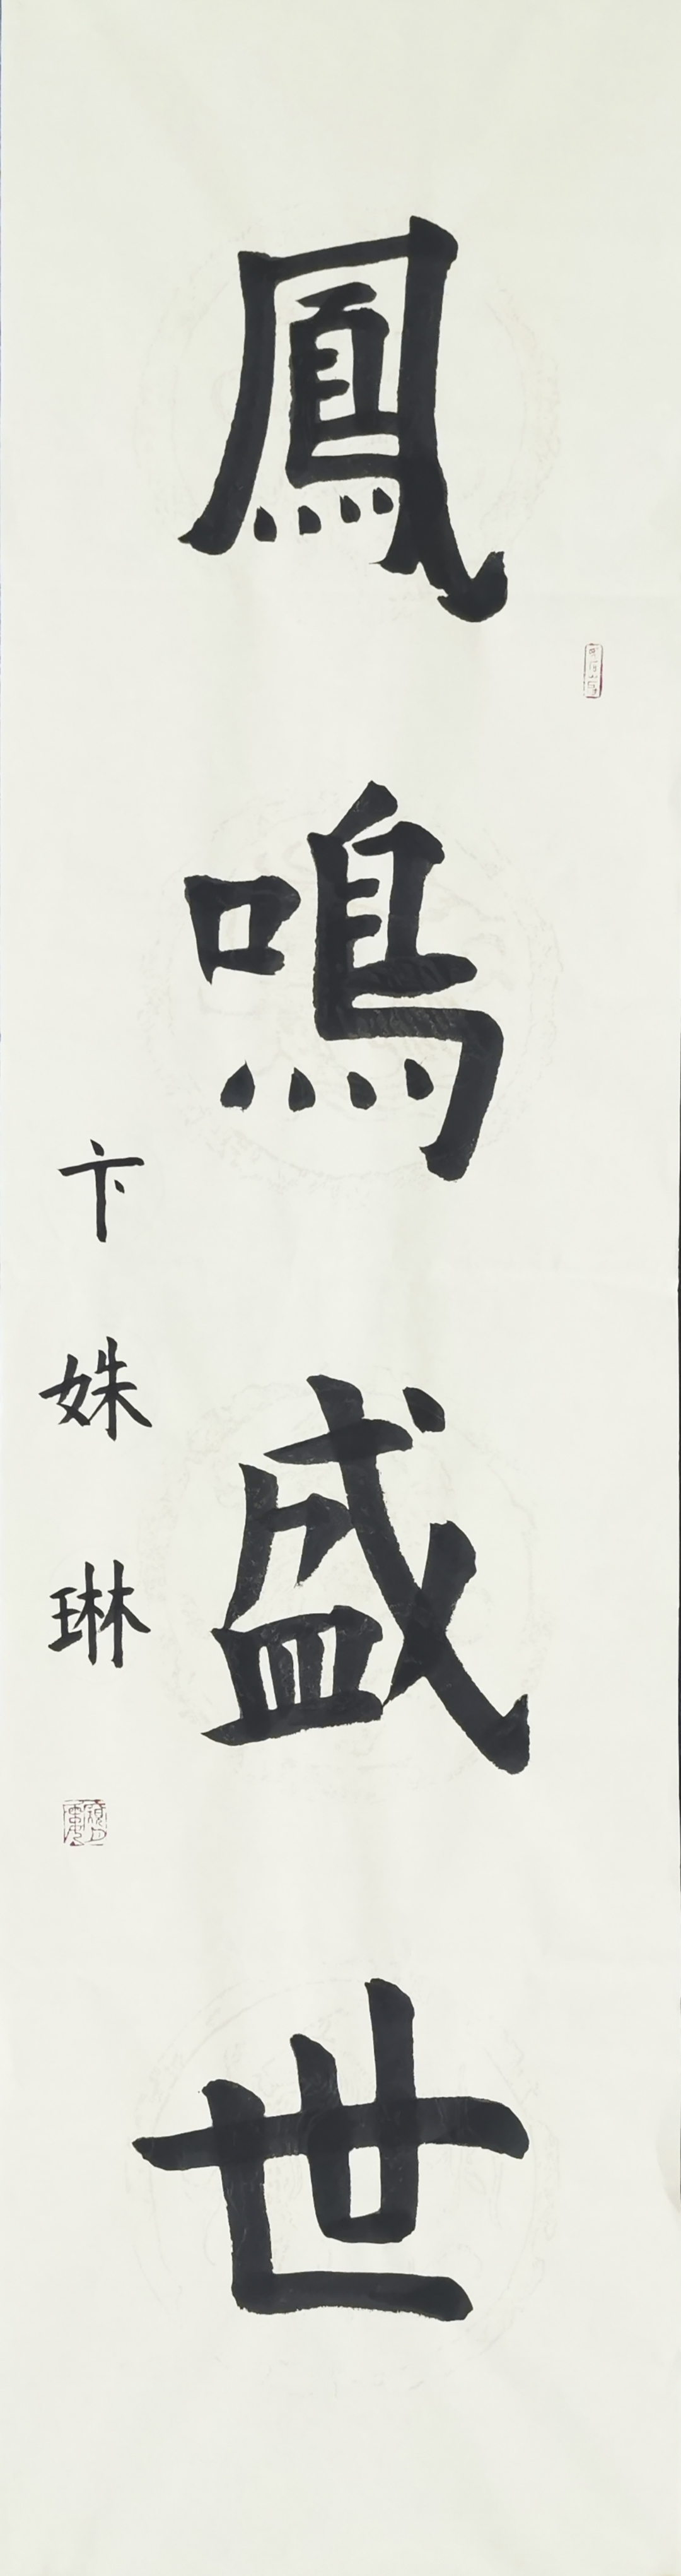 鳳鳴盛世
卞姝琳